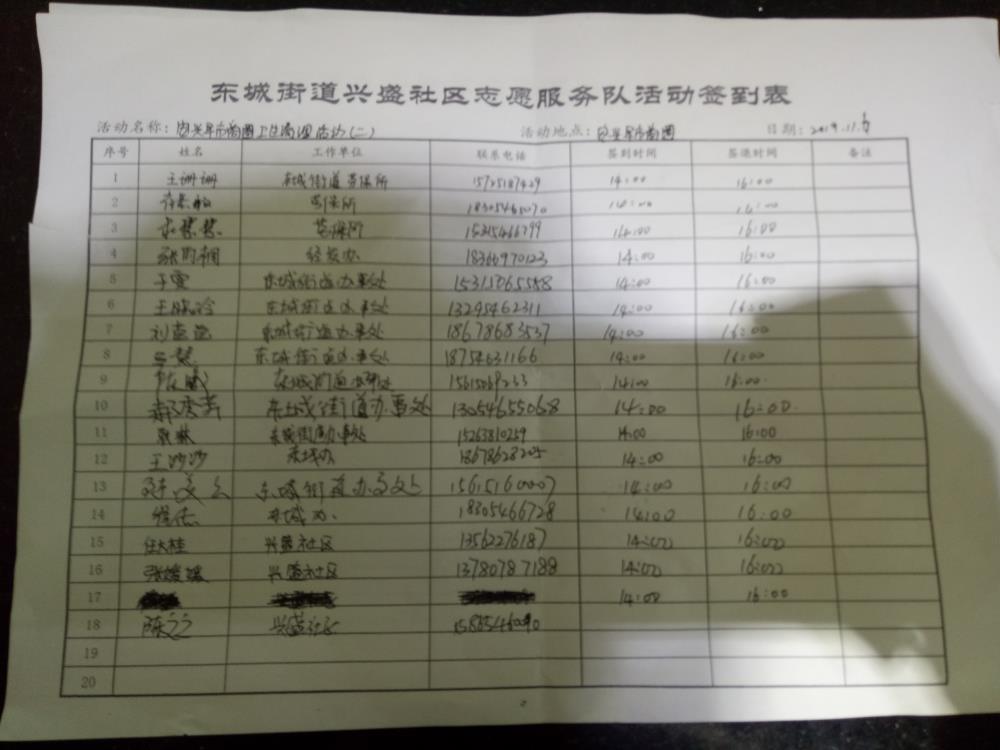 东城街道兴盛社区志愿服务队活动签到表
活动名称: 卫生清理活动(二) 活动地点: 日期: 2019.11.
序号 姓名 工作单位 联系电话 签到时间 签退时间 备注
1 王珊珊 东城街道劳保所 15725187429 14:00 16:00
2 劳保所 18305465070 14:00 16:00
3 劳保所 14:00 16:00
4 经发办 18366970123 14:00 16:00
5 于雪 东城街道办事处 15311065558 14:00 16:00
6 王晓玲 东城街道办事处 13295462311 14:00 16:00
7 东城街道办事处 18678683537 14:00 16:00
8 东城街道办事处 18754631166 14:00 16:00
9 陈威 东城街道办事处 14:00 16:00
10 郝秀芳 东城街道办事处 13054655068 14:00 16:00
11 耿琳 东城街道办事处 15263810259 14:00 16:00
12 王沙沙 东城办 18678628205 14:00 16:00
13 东城街道办事处 15615160007 14:00 16:00
14 东城办 18305466728 14:00 16:00
15 任大桂 兴盛社区 13562276187 14:00 16:00
16 张媛媛 兴盛社区 13780787188 14:00 16:00
17 14:00 16:00
18 陈之之 兴盛社区
19
20